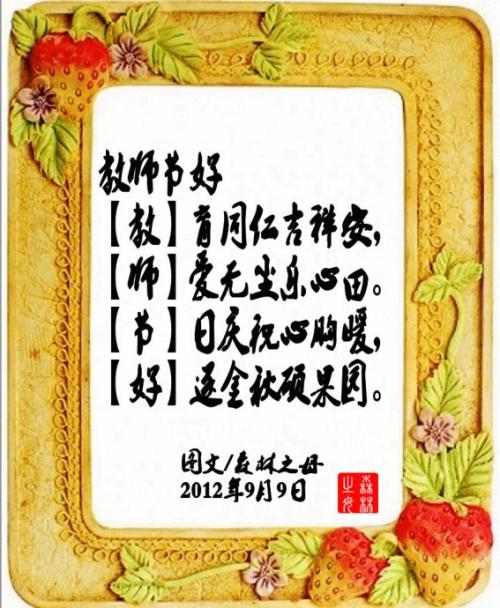 教师节好
【教】育同仁吉祥安，
【师】爱无尘乐心田。
【节】日庆祝心胸暖，
【好】逐金秋硕果园。
图文/森林之母
2012年9月9日
森林之母